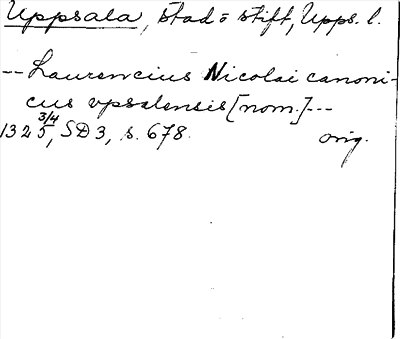 Uppsala, stad o stift, Upps. l.
-- Laurencius Nicolai canoni-
cus vpsalensis [nom.] ---
1325 3/4, SD 3, s. 678. orig.